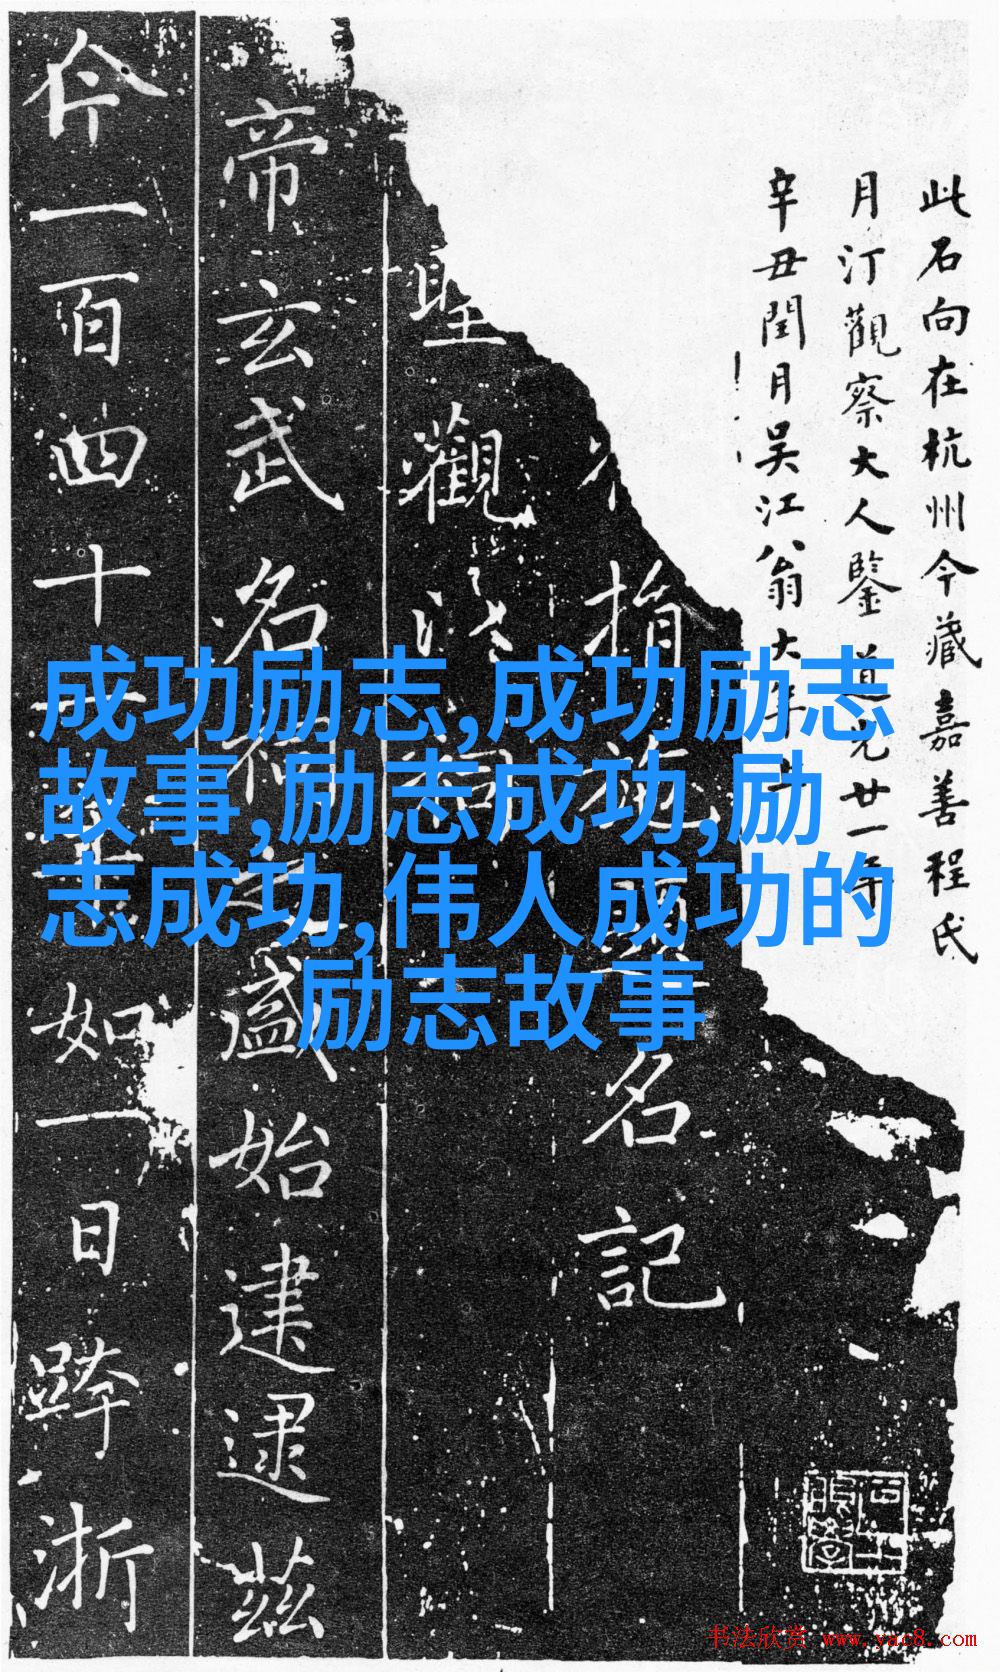 此石向在杭州今藏嘉善程氏
月汀觀察大人鑒道光廿一年
辛丑閏月吳江翁大年上
指名記
觀
帝玄武名盛始建逮茲
今一百四十如一日跨浙
成功励志,成功励志
故事,励志成功,励
志成功,伟人成功的
励志故事
书法欣赏 www.yac8.com